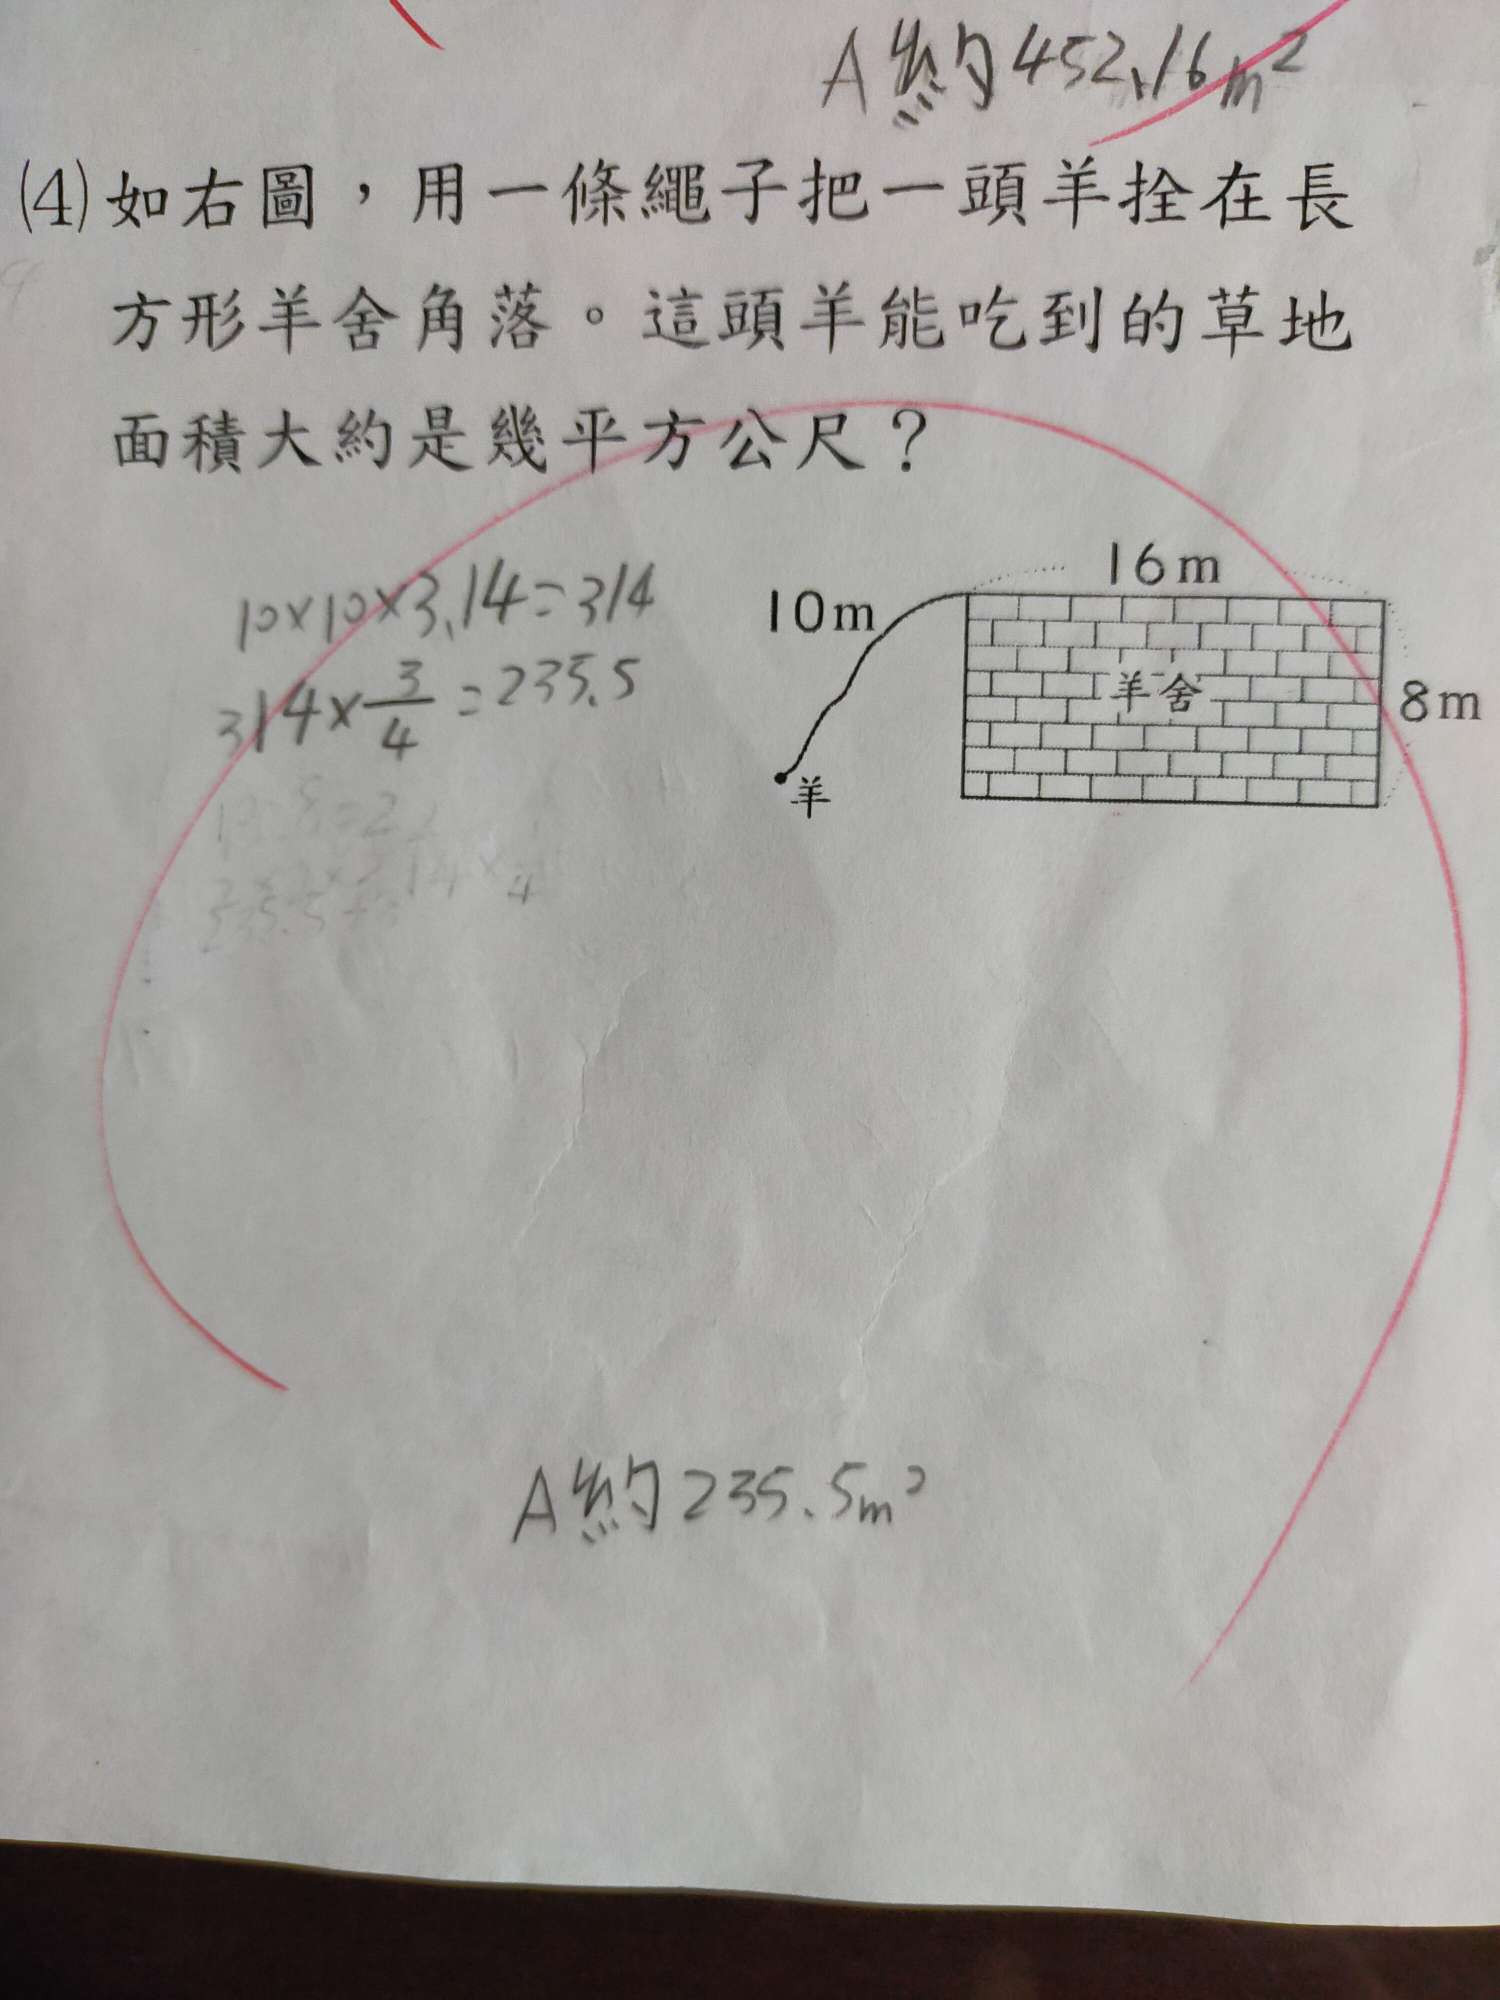 A 約452.16m²
(4)如右圖，用一條繩子把一頭羊拴在長
方形羊舍角落。這頭羊能吃到的草地
面積大約是幾平方公尺？
16m
10m
10×10×3.14=314
羊舍
8m
314×3/4=235.5
羊
A 約235.5m²